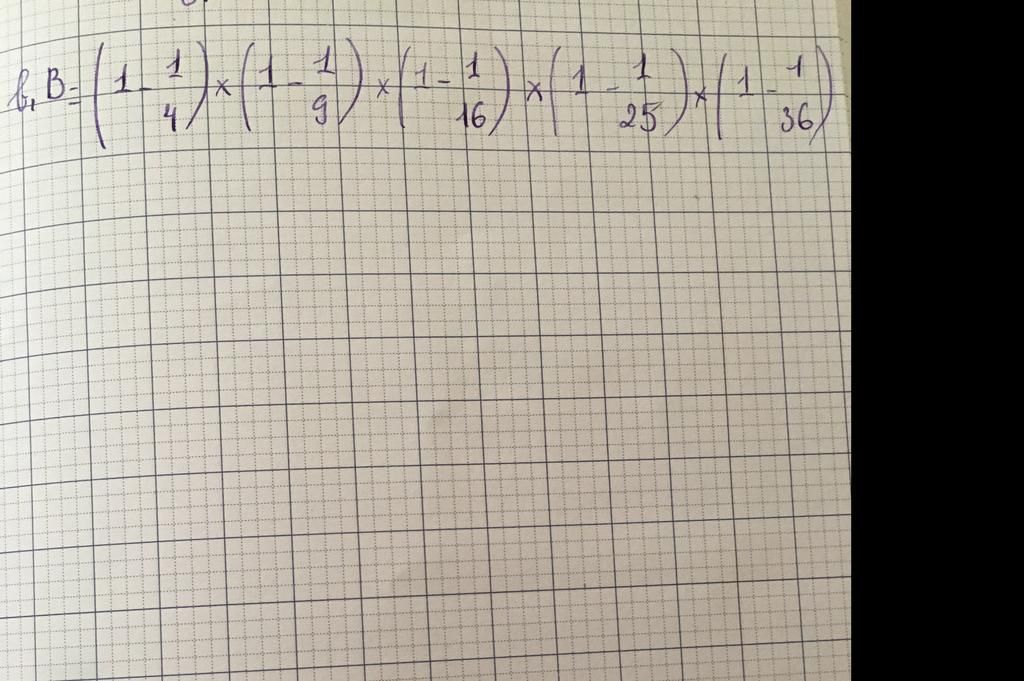 b, B = (1 - 1/4) × (1 - 1/9) × (1 - 1/16) × (1 - 1/25) × (1 - 1/36)